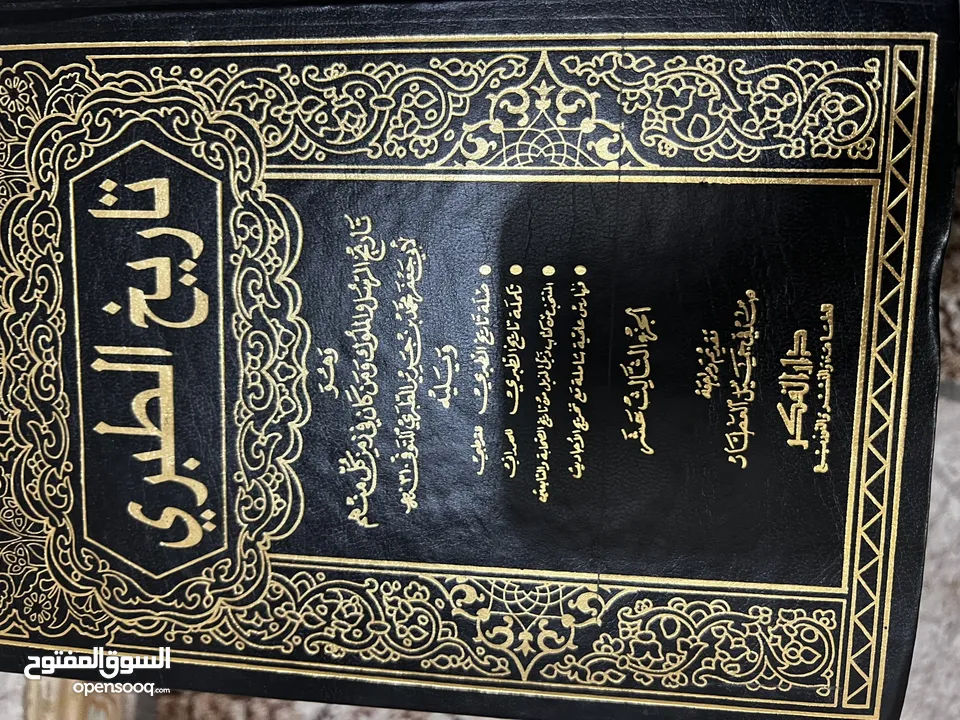 تاريخ الطبري
وهو
تاريخ الرسل والملوك ومن كان في زمن كل منهم
لأبي جعفر محمد بن جرير الطبري المتوفى ٣١٠ هـ
ويليه
• صلة تاريخ الطبري للقرطبي
• تكملة تاريخ الطبري للهمداني
• المنتخب من كتاب ذيل المذيل من تاريخ الصحابة والتابعين
• فهارس علمية شاملة مع تخريج الأحاديث
الجزء الثالث عشر
تقديم ومراجعة
صدقي جميل العطار
دار الفكر
للطباعة والنشر والتوزيع
السوق المفتوح
opensooq.com